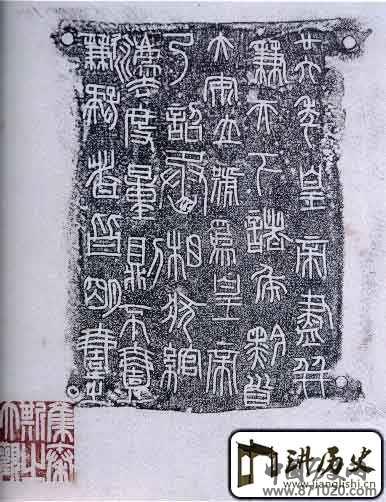 廿六年皇帝盡并
兼天下諸侯黔首
大安立號爲皇帝
乃詔丞相狀綰
灋度量則不壹
歉疑者皆明壹之
讲历史
www.jianglishi.cn
www.871020.com